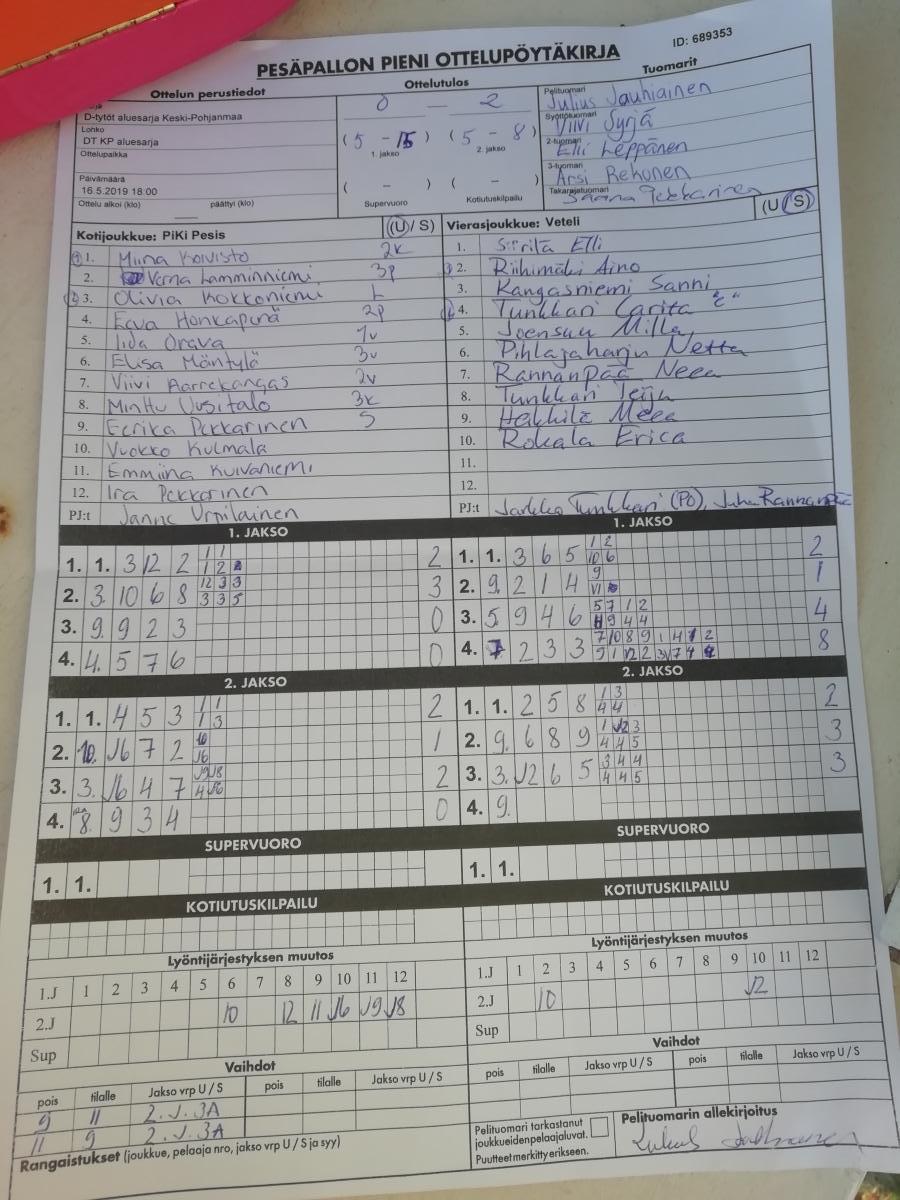 PESÄPALLON PIENI OTTELUPÖYTÄKIRJA
ID: 689353
Ottelun perustiedot
D-tytöt aluesarja Keski-Pohjanmaa
Lohko
DT KP aluesarja
Ottelupaikka
Päivämäärä
16.5.2019 18:00
Ottelu alkoi (klo) päättyi (klo)
Ottelutulos
0 — 2
( 5 - 15 ) ( 5 - 8 )
1. jakso 2. jakso
( - ) ( - )
Supervuoro Kotiutuskilpailu
Tuomarit
Pelituomari
Julius Jauhiainen
Syöttötuomari
Viivi Syrjä
2-tuomari
Elli Leppänen
3-tuomari
Arsi Rekonen
Takarajatuomari
Sanna Pekkarinen
Kotijoukkue: PiKi Pesis (U / S)
1. Miina Koivisto 2k
2. Verna Lamminniemi 3p
3. Olivia Kokkoniemi L
4. Eeva Honkapurä 2p
5. Iida Orava 1v
6. Elisa Mäntylä 3v
7. Viivi Aarrekangas 2v
8. Minttu Uusitalo 3k
9. Eerika Pekkarinen S
10. Vuokko Kulmala
11. Emmiina Kuivaniemi
12. Ira Pekkarinen
PJ:t Janne Urpilainen
Vierasjoukkue: Veteli (U / S)
1. Siirilä Elli
2. Riihimäki Aino
3. Kangasniemi Sanni
4. Tunkkari Carita "C"
5. Joensuu Milla
6. Pihlajaharju Netta
7. Rannanpää Neea
8. Tunkkari Teiju
9. Heikkilä Meea
10. Rokala Erica
11.
12.
PJ:t Jarkko Tunkkari (PO), Juha Rannanpää
1. JAKSO
1. 1. 3 12 2 1 1 2
1 2
2. 3. 10 6 8 12 3 3 3
3 3 5
3. 9. 9 2 3 0
4. 4. 5 7 6 0
1. JAKSO
1. 1. 3 6 5 1 2 2
10 6
2. 9. 2 1 4 9 1
3. 5. 9 4 6 5 7 1 2 4
9 4 4
4. 2 3 3 7 10 8 9 1 4 1 2 8
2. JAKSO
1. 1. 4 5 3 1 1 2
1 3
2. 10. J6 7 2 10 1
J6
3. 3. J6 4 7 J9 J8 2
4 J6
4. 8. 9 3 4 0
2. JAKSO
1. 1. 2 5 8 1 3 2
4 4
2. 9. 6 8 9 1 J2 3 3
4 4 5
3. 3. J2 6 5 3 4 4 3
4 4 5
4. 9.
SUPERVUORO
1. 1.
SUPERVUORO
1. 1.
KOTIUTUSKILPAILU
KOTIUTUSKILPAILU
Lyöntijärjestyksen muutos
1.J 1 2 3 4 5 6 7 8 9 10 11 12
2.J 10 12 11 J6 J9 J8
Sup
Lyöntijärjestyksen muutos
1.J 1 2 3 4 5 6 7 8 9 10 11 12
2.J 10 J2
Sup
Vaihdot
pois tilalle Jakso vrp U / S pois tilalle Jakso vrp U / S
9 11 2.J.3A
11 9 2.J.3A
Vaihdot
pois tilalle Jakso vrp U / S pois tilalle Jakso vrp U / S
Rangaistukset (joukkue, pelaaja nro, jakso vrp U / S ja syy)
Pelituomari tarkastanut
joukkueiden pelaajaluvat.
Puutteet merkitty erikseen.
Pelituomarin allekirjoitus